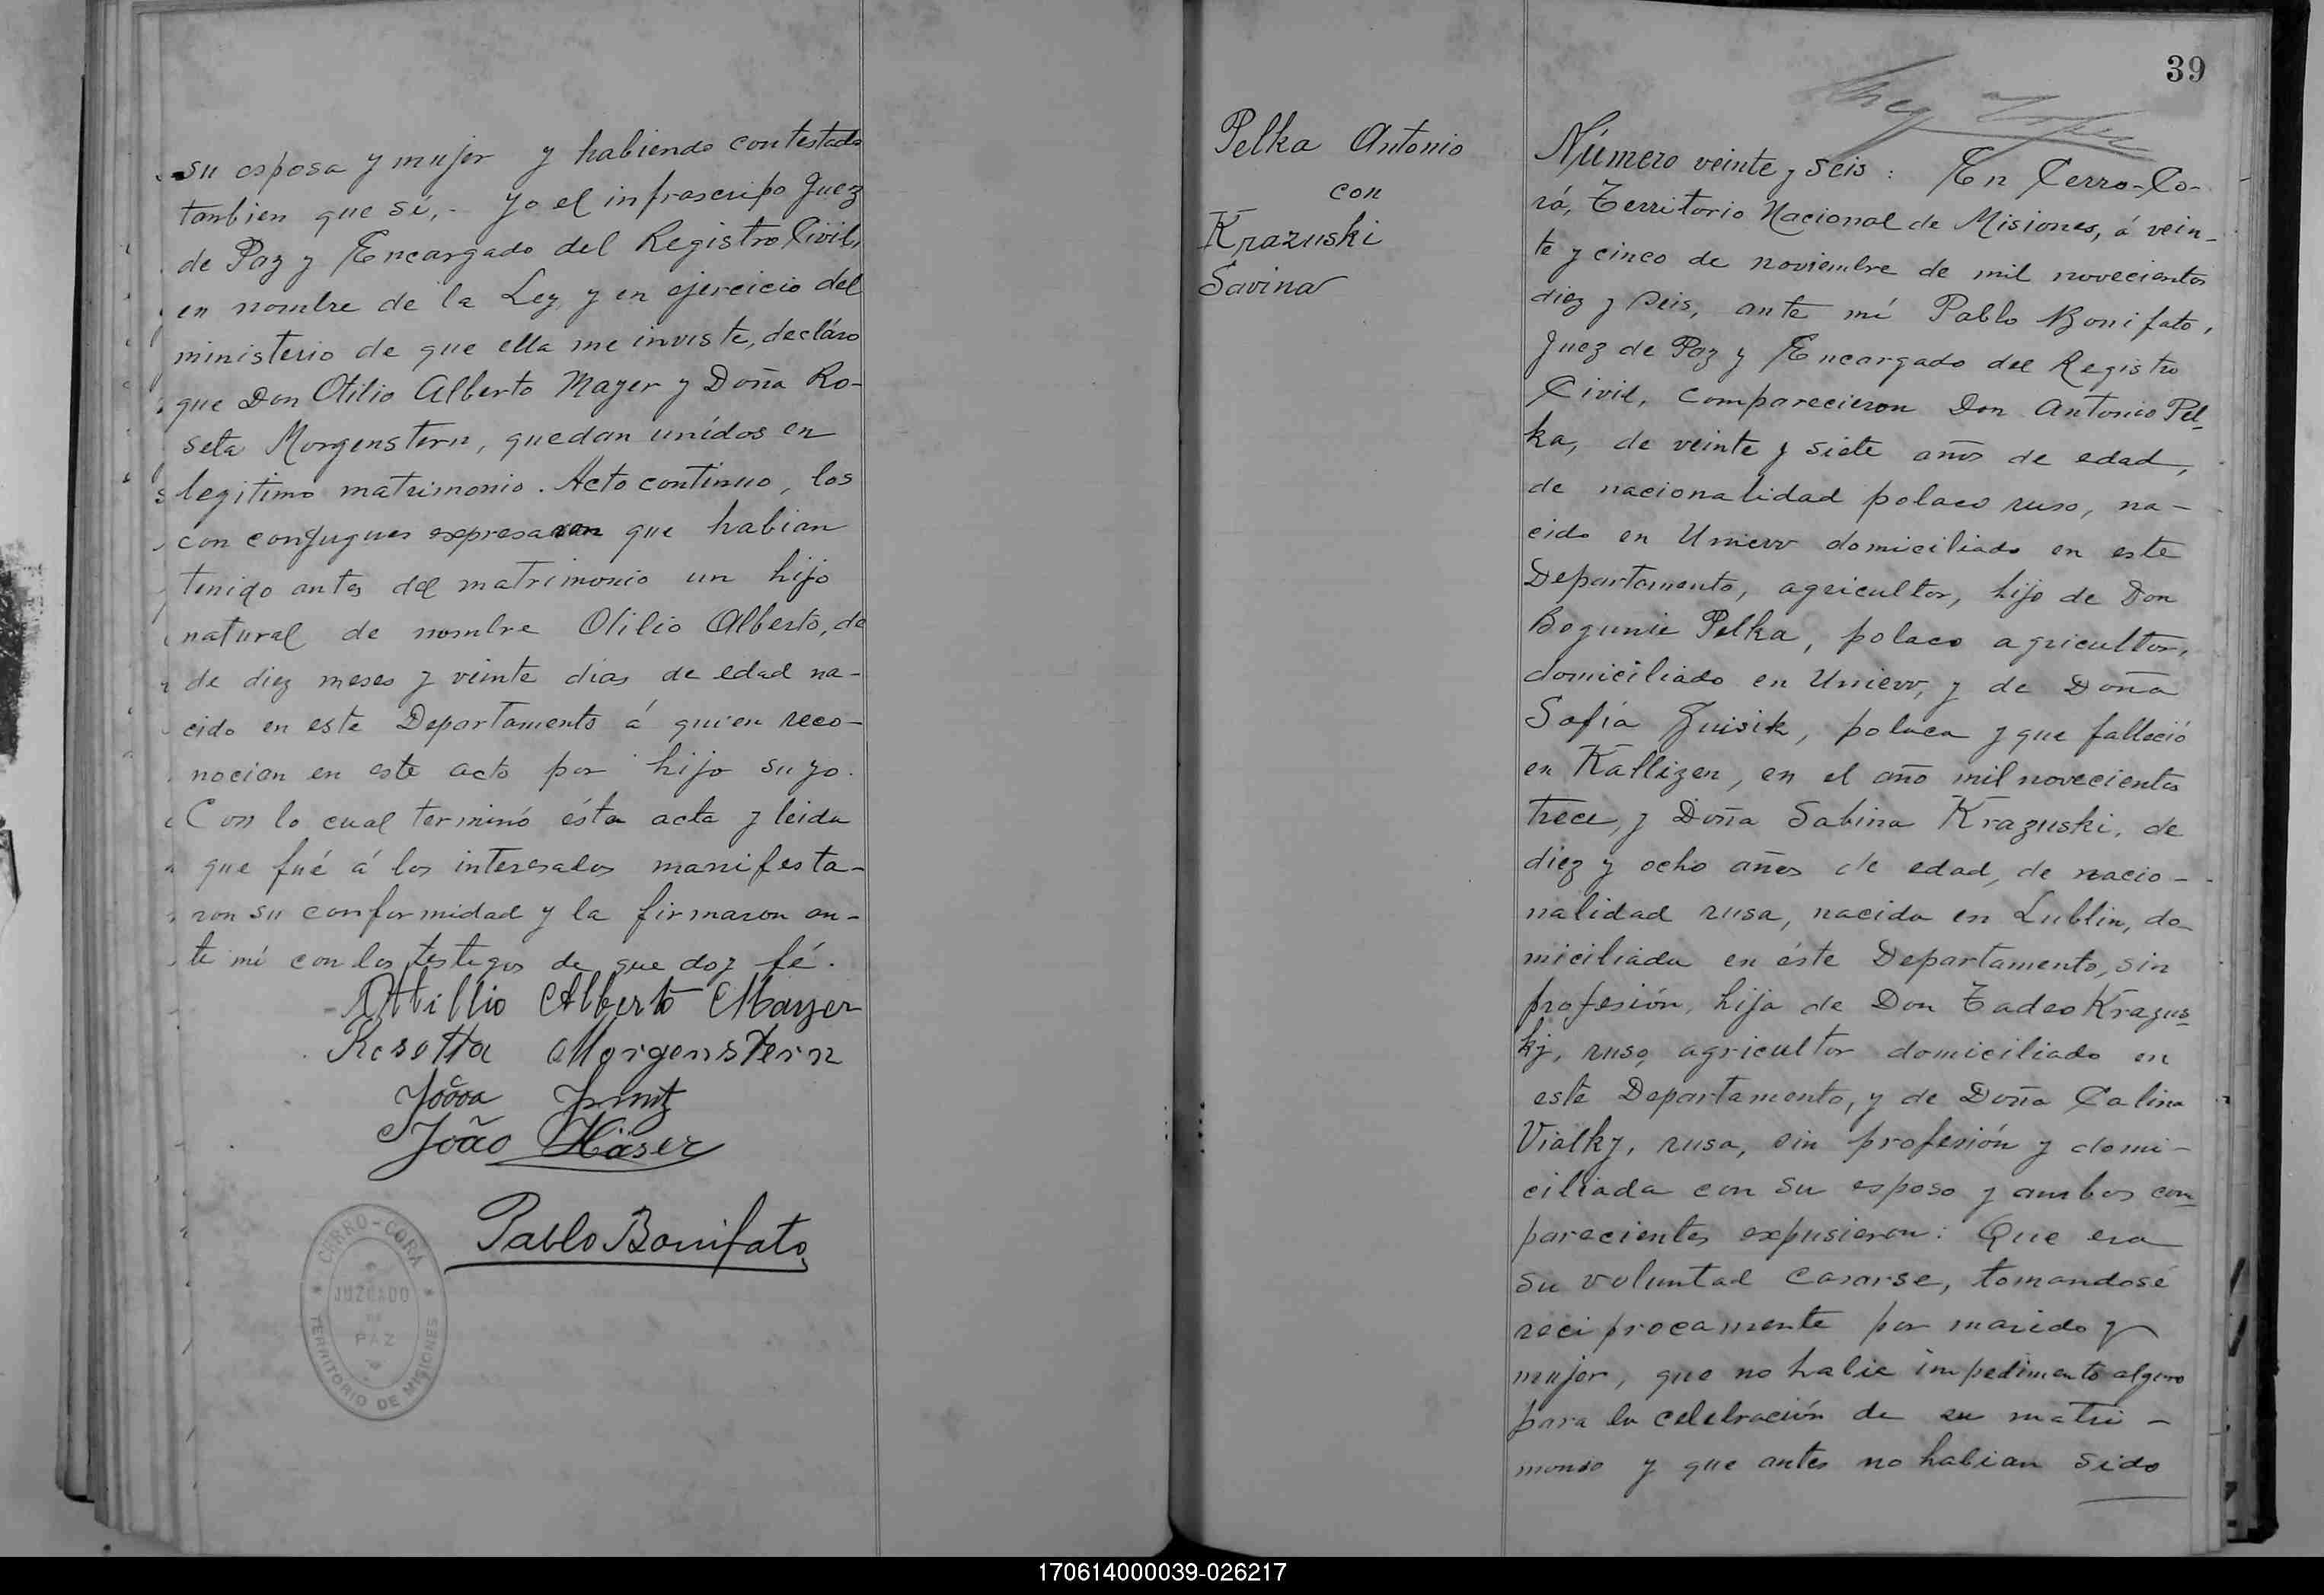 su esposa y mujer y habiendo contestado
tanbien que sí,- Yo el infrascripo Juez
de Paz y Encargado del Registro Civil,
en nombre de la Ley y en ejercicio del
ministerio de que ella me inviste, decláro
que Don Otilio Alberto Mayer y Doña Ro-
seta Morgenstern, quedan unídos en
legitimo matrimonio. Acto continuo, los
con conjugues expresaron que habian
tenido antes del matrimonio un hijo
natural de nombre Otilio Alberto, de
de diez meses y veinte dias de edad na-
cido en este Departamento á quien reco-
nocian en este acto por hijo suyo.
Con lo cual terminó ésta acta y leida
que fué á los interesados manifesta-
ron su conformidad y la firmaron an-
te mi con los testigos de que doy fé.
Ottillio Alberto Mayer
Rosetta Morgenstern
João Häser
Pablo Bonifato
CERRO-CORÁ
JUZGADO
DE
PAZ
TERRITORIO DE MISIONES
39
Pelka Antonio
con
Krazuski
Savina
Número veinte y seis: En Cerro-Co-
rá, Territorio Nacional de Misiones, á vein-
te y cinco de noviembre de mil novecientos
diez y seis, ante mi Pablo Bonifato,
Juez de Paz y Encargado del Registro
Civil, comparecieron Don Antonio Pel-
ka, de veinte y siete años de edad,
de nacionalidad polaco ruso, na-
cido en Uniew domiciliado en este
Departamento, agricultor, hijo de Don
Bogunie Pelka, polaco agricultor,
domiciliado en Uniew, y de Doña
Sofía Guisik, polaca y que falleció
en Kallizen, en el año mil novecientos
trece, y Doña Sabina Krazuski, de
diez y ocho años de edad, de nacio-
nalidad rusa, nacida en Lublin, do-
miciliada en éste Departamento, sin
profesión, hija de Don Tadeo Krazus-
ky, ruso, agricultor domiciliado en
este Departamento, y de Doña Calina
Vialky, rusa, sin profesión y domi-
ciliada con su esposo y ambos com-
parecientes expusieron: Que era
su voluntad casarse, tomandosé
reciprocamente por marido y
mujer, que no habia impedimento alguno
para la celebración de su matri-
monio y que antes no habian sido
170614000039-026217